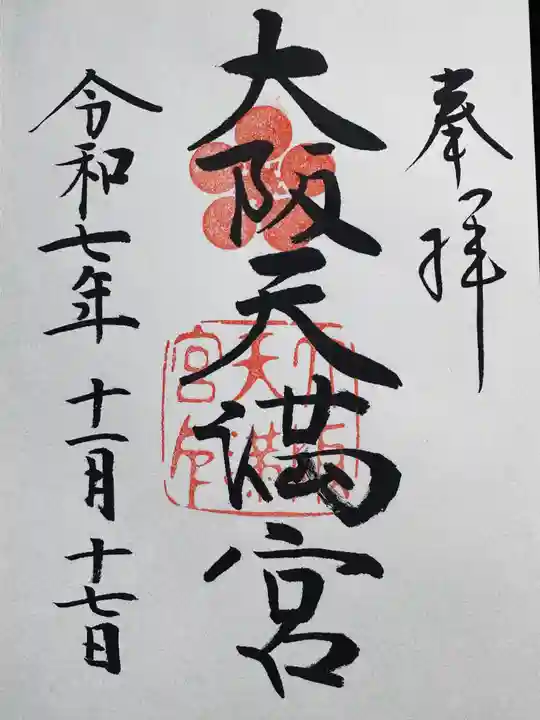 奉拝
大阪天満宮
令和七年 十一月 十七日
大阪天満宮印